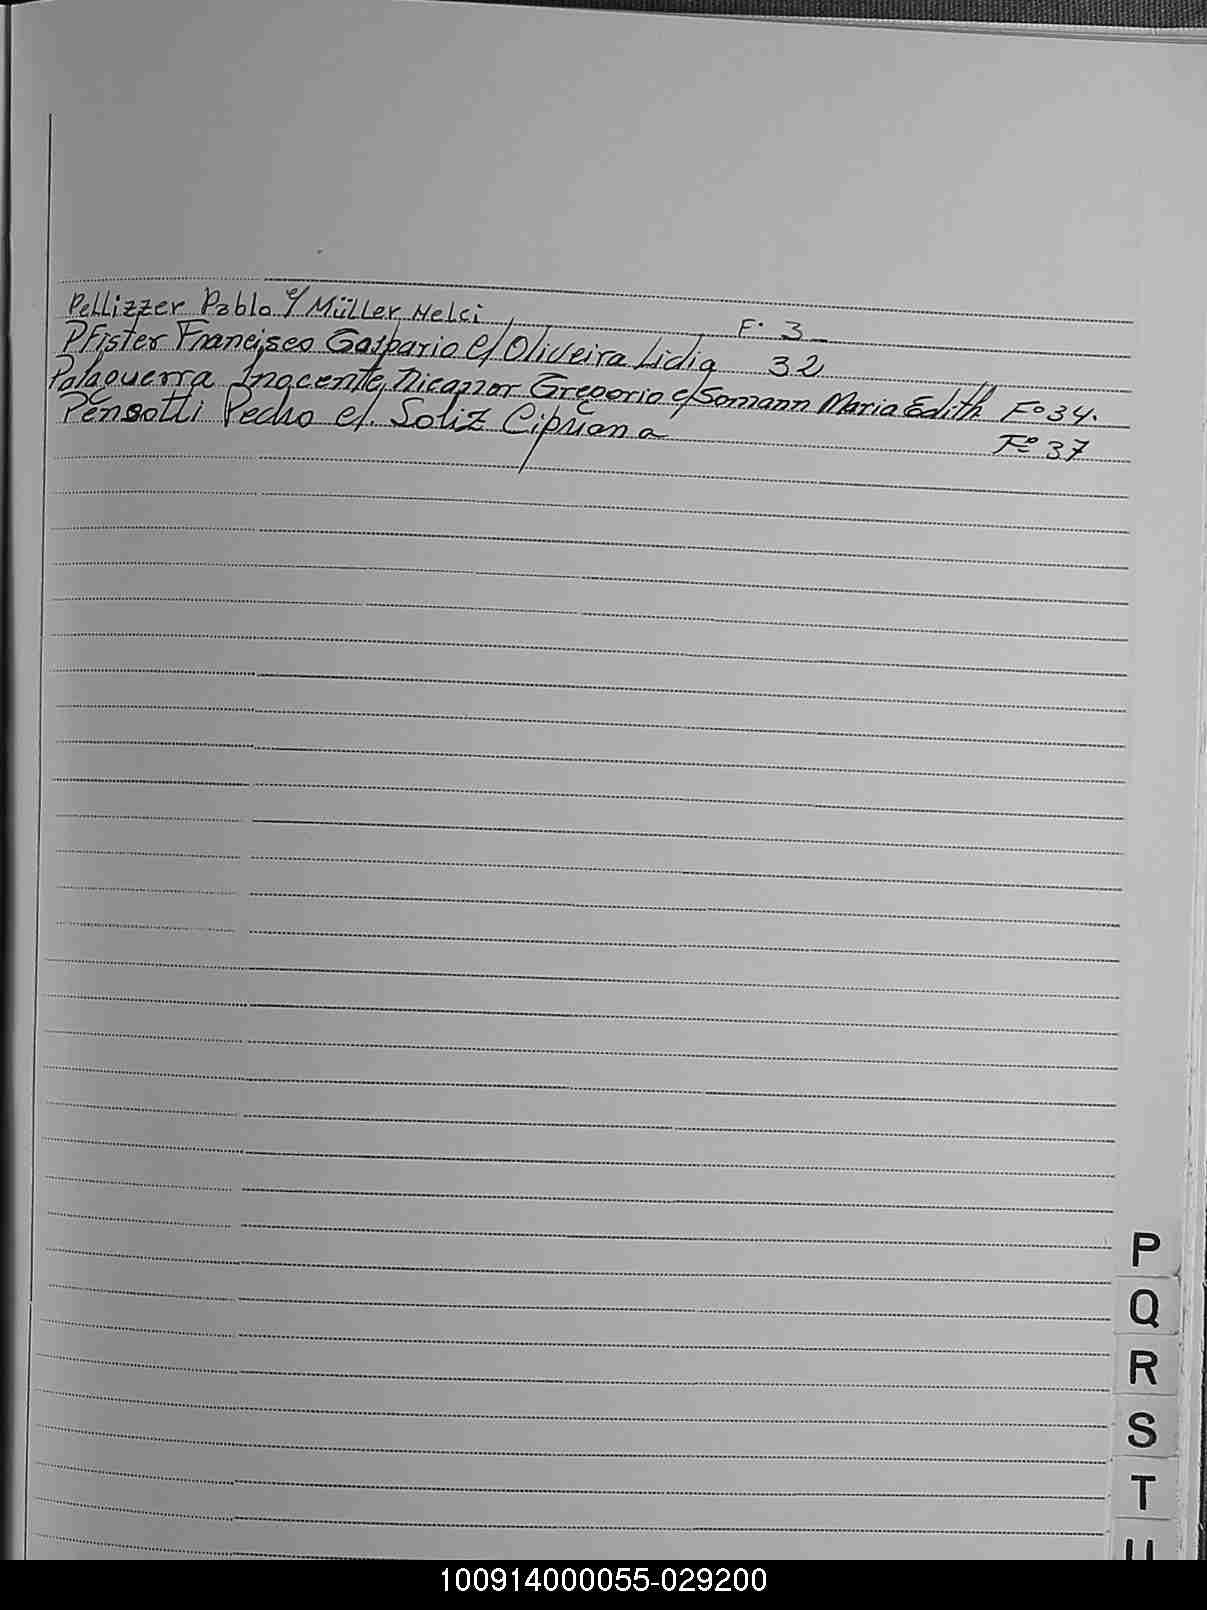 Pellizzer Pablo c/ Müller Nelci F. 3
Pfister Francisco Gaspario c/ Oliveira Lidia 32
Palaguerra Inocente, Nicanor Gregorio c/ Somann Maria Edith Fº 34.
Pensotti Pedro c/. Soliz Cipriana Fº 37
P
Q
R
S
T
U
100914000055-029200